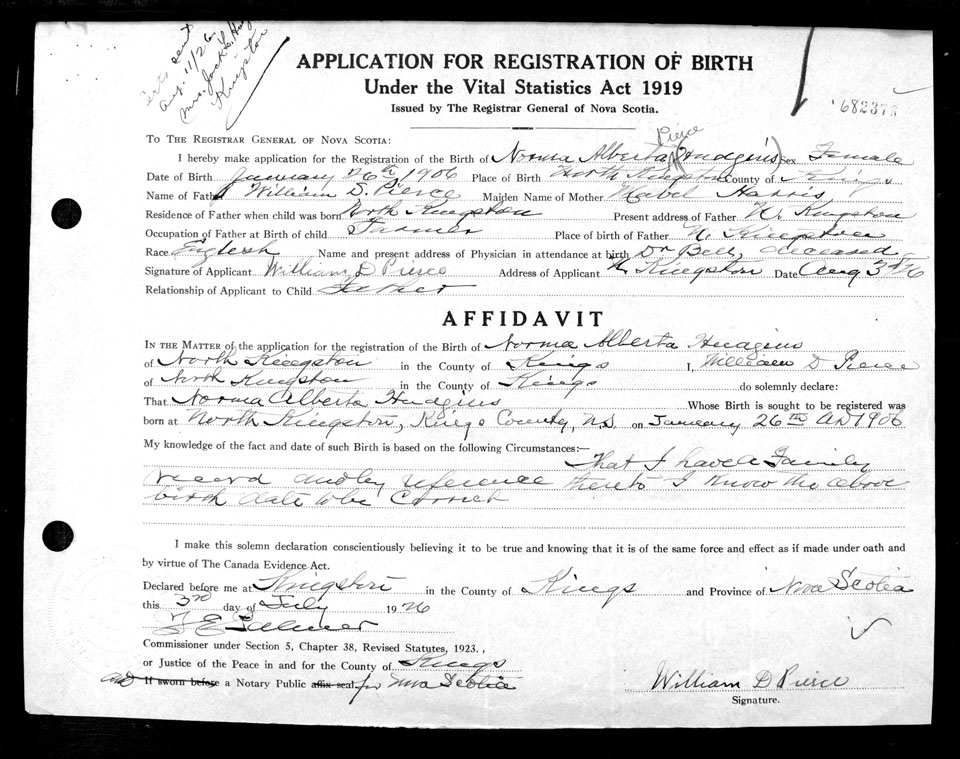 Certs sent
Aug. 11/26.
Mrs. Jack L.
Kingston
APPLICATION FOR REGISTRATION OF BIRTH
Under the Vital Statistics Act 1919
Issued by The Registrar General of Nova Scotia.
682373
TO THE REGISTRAR GENERAL OF NOVA SCOTIA:
Pierce
I hereby make application for the Registration of the Birth of Norma Alberta (Hudgins) Sex Female
Date of Birth January 26th 1906 Place of Birth North Kingston County of Kings
Name of Father William D. Pierce Maiden Name of Mother Mabel Harris
Residence of Father when child was born North Kingston Present address of Father N. Kingston
Occupation of Father at Birth of child Farmer Place of birth of Father N. Kingston
Race English Name and present address of Physician in attendance at birth Dr Bell, deceased
Signature of Applicant William D Pierce Address of Applicant N. Kingston Date Aug 3rd/26
Relationship of Applicant to Child Father
AFFIDAVIT
IN THE MATTER of the application for the registration of the Birth of Norma Alberta Hudgins
of North Kingston in the County of Kings I, William D Pierce
of North Kingston in the County of Kings do solemnly declare:
That Norma Alberta Hudgins Whose Birth is sought to be registered was
born at North Kingston, Kings County, N.S. on January 26th AD 1906
My knowledge of the fact and date of such Birth is based on the following Circumstances:—
That I have a Family
record and by reference thereto I know the above
birth date to be Correct
I make this solemn declaration conscientiously believing it to be true and knowing that it is of the same force and effect as if made under oath and
by virtue of The Canada Evidence Act.
Declared before me at Kingston in the County of Kings and Province of Nova Scotia
this 3rd day of July 1926
Commissioner under Section 5, Chapter 38, Revised Statutes, 1923.,
or Justice of the Peace in and for the County of Kings
and If sworn before a Notary Public affix seal. for Nova Scotia
William D Pierce
Signature.